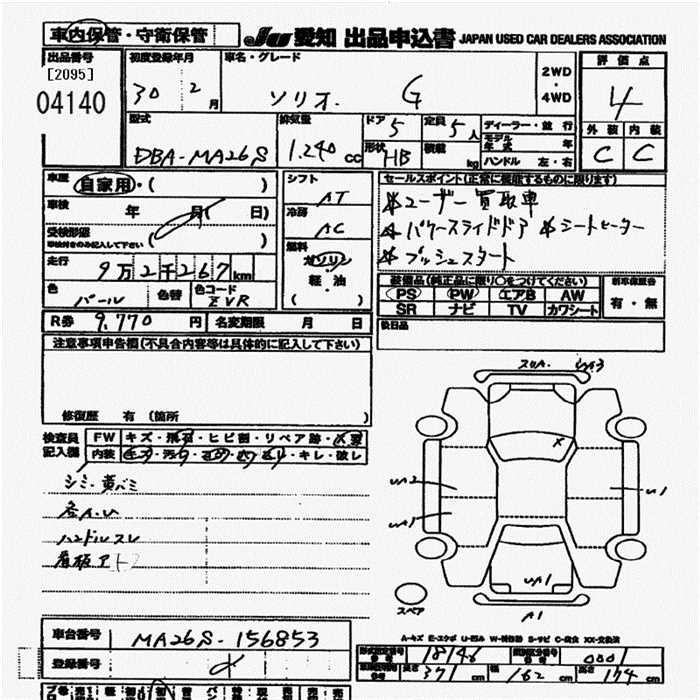 車内保管・守衛保管 JU 愛知 出品申込書 JAPAN USED CAR DEALERS ASSOCIATION
出品番号 初度登録年月 車名・グレード 2WD 評価点
[2095] 30年 2月 ソリオ. G ・4WD 4
04140
型式 排気量 ドア 5 定員 5人 ディーラー・並行 外装 内装
DBA-MA26S 1.240cc 形状 HB 積載 kg モデル年式 年 C C
ハンドル 左・右
車歴 自家用・( ) シフト AT セールスポイント(正常に機能するものに限ります)
車検 年 月( 日) 冷房 AC ＊ユーザー買取車
受検形態 ( ) ＊パワースライドドア ＊シートヒーター
車検付きのみ記入して下さい 燃料 ガソリン ＊プッシュスタート
走行 9万2千267km 軽油
色 パール 色替 色コード ZVR ( )
装備品(純正品に限り○をつけてください) 新車保証書
PS PW エアB AW 有・無
SR ナビ TV カワシート
R券 9,770円 名変期限 月 日 後日品
注意事項申告欄(不具合内容等は具体的に記入して下さい)
修復歴 有 (箇所 )
検査員 FW キズ・飛石・ヒビ割・リペア跡・X要
記入欄 内装 キズ・汚れ・コゲ・穴・ヌリ・キレ・破レ
シミ・黄バミ
各A.U
ハンドルスレ
看板アト
A1
スペア
A-キズ E-エクボ U-凹ミ W-補修跡 S-サビ C-腐食 XX-交換済
車台番号 MA26S-156853
登録番号
型式指定番号 18146 類別区分番号 0001
長さ 371cm 幅 162cm 高さ 174cm